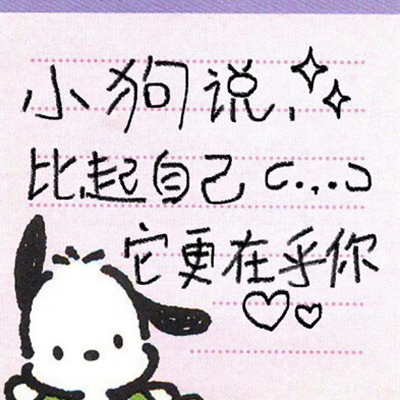 小狗说,
比起自己 C...Ɔ
它更在乎你